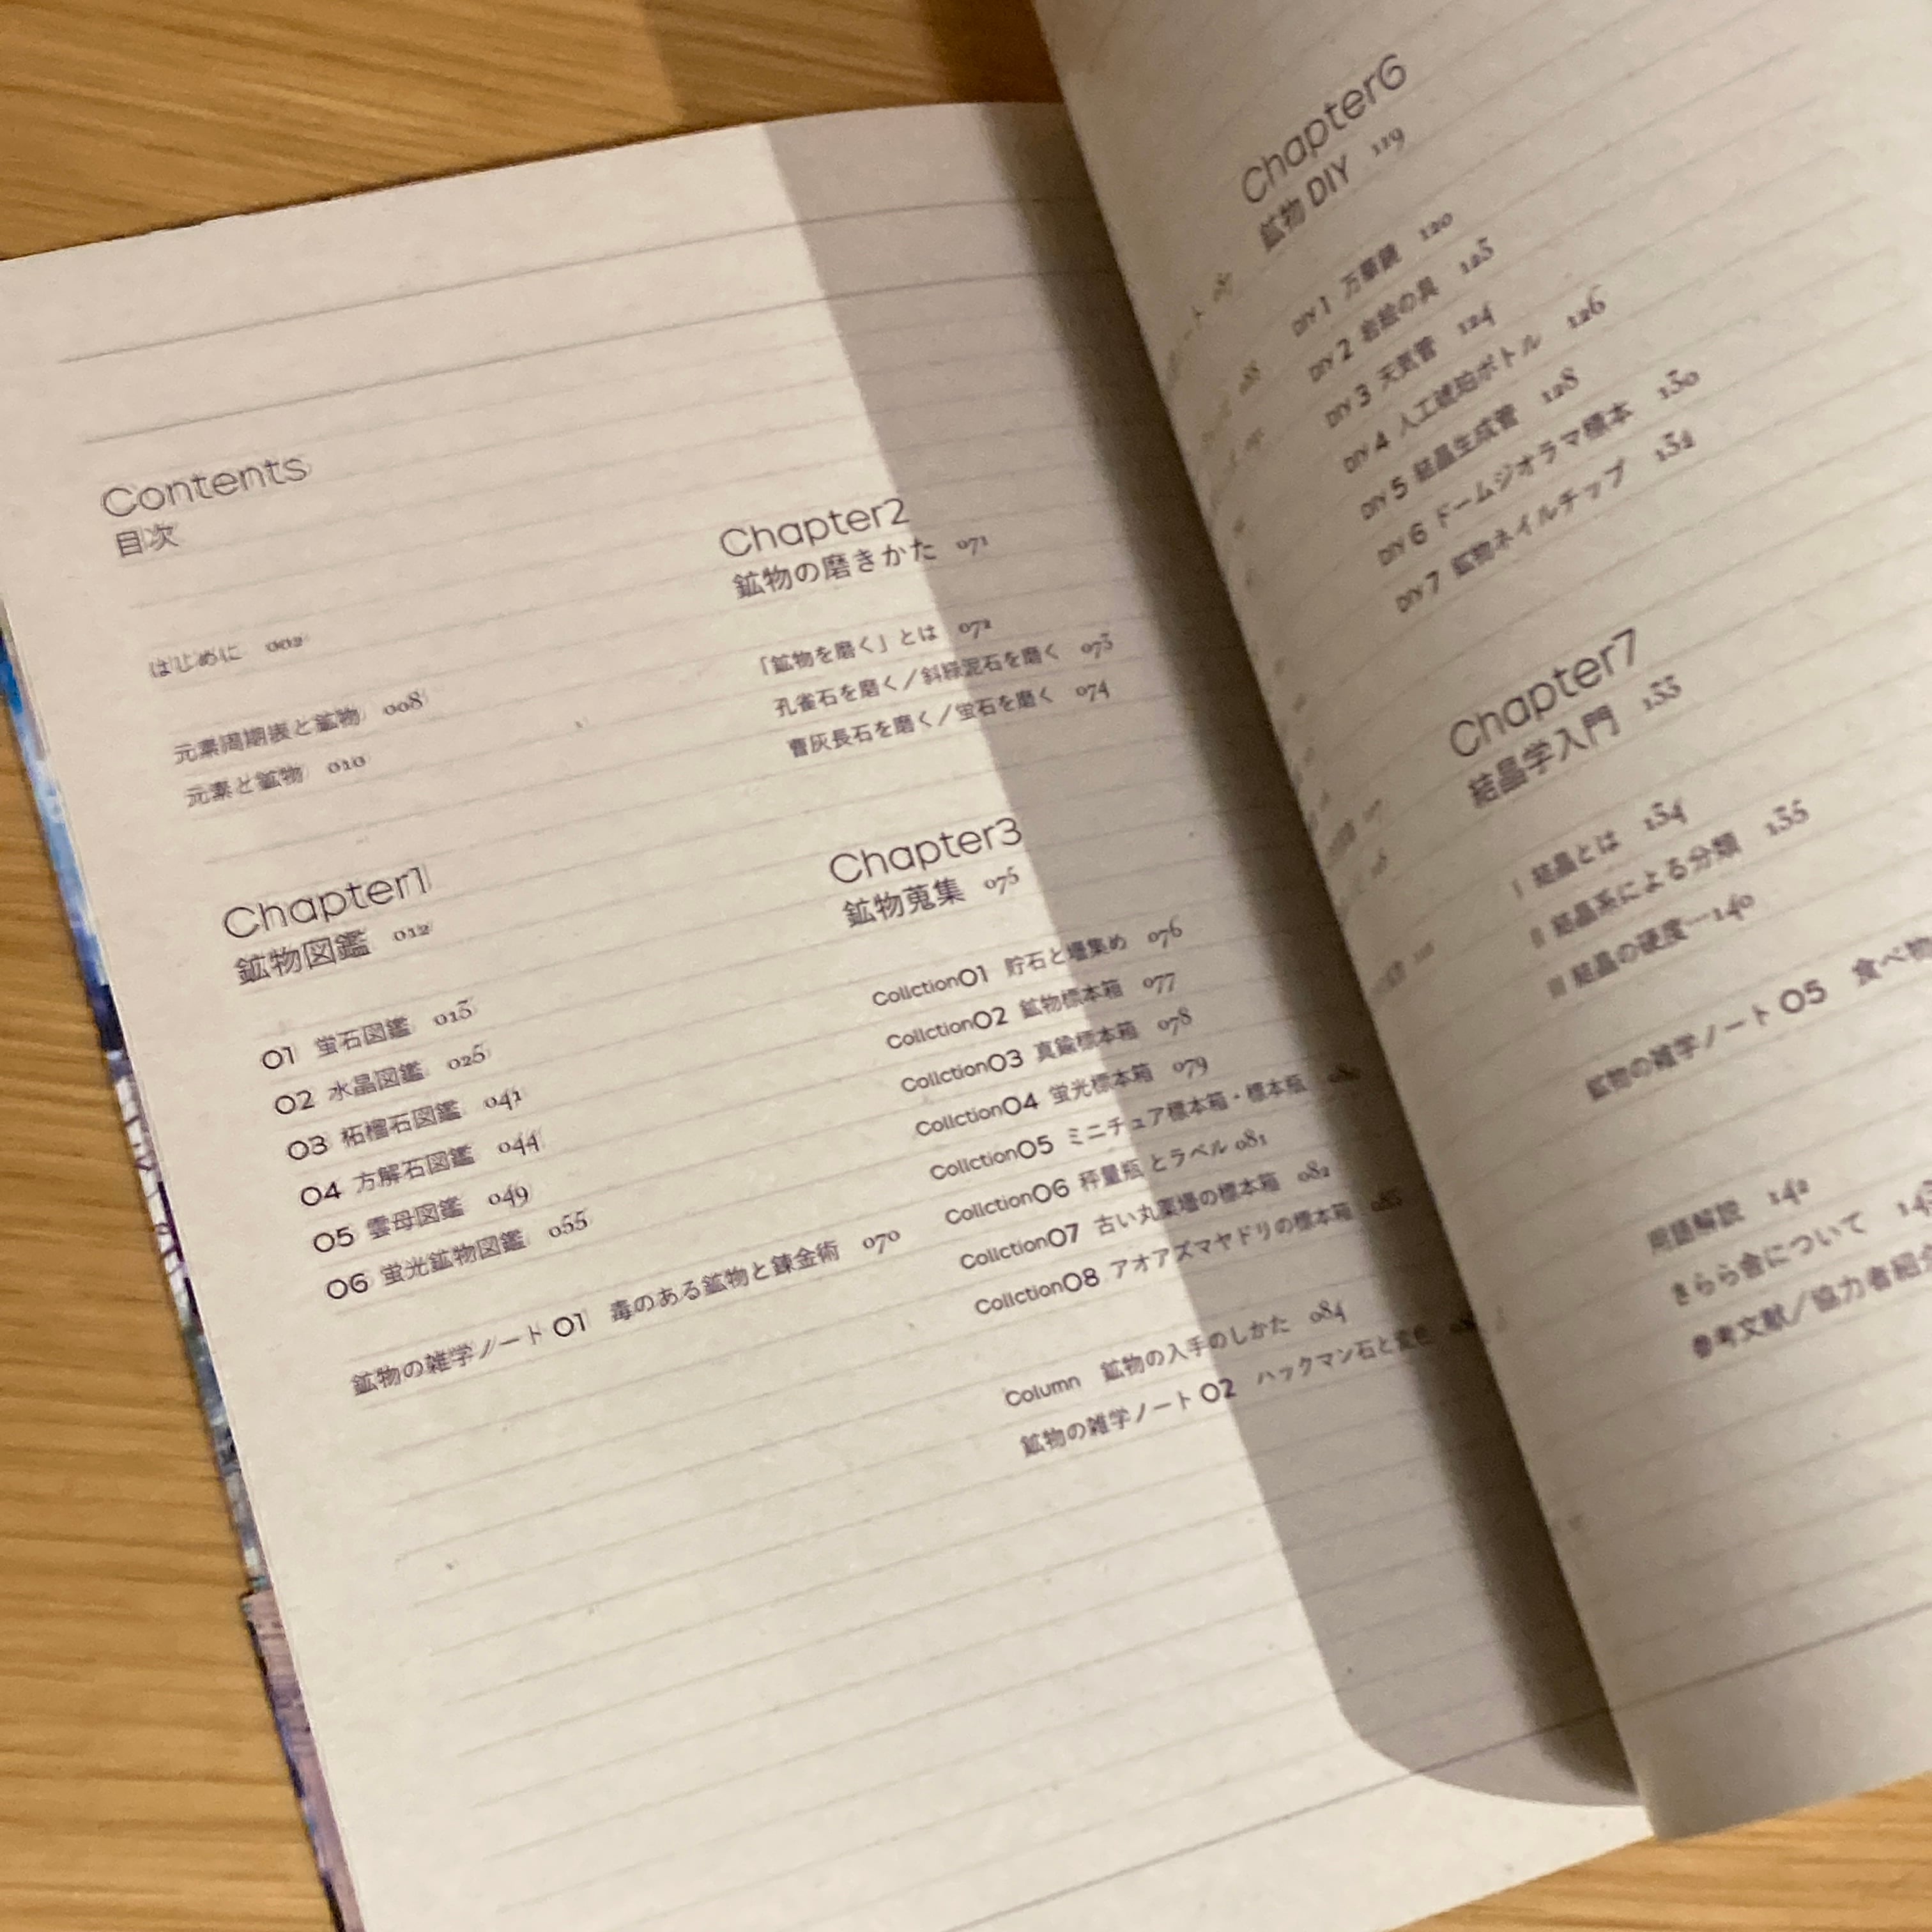 Contents
目次
はじめに 002
元素周期表と鉱物 008
元素と鉱物 010
Chapter1
鉱物図鑑 012
01 蛍石図鑑 013
02 水晶図鑑 025
03 柘榴石図鑑 041
04 方解石図鑑 044
05 雲母図鑑 049
06 蛍光鉱物図鑑 055
鉱物の雑学ノート 01 毒のある鉱物と錬金術 070
Chapter2
鉱物の磨きかた 071
「鉱物を磨く」とは 072
孔雀石を磨く／斜緑泥石を磨く 073
曹灰長石を磨く／蛍石を磨く 074
Chapter3
鉱物蒐集 075
Collction01 貯石と壜集め 076
Collction02 鉱物標本箱 077
Collction03 真鍮標本箱 078
Collction04 蛍光標本箱 079
Collction05 ミニチュア標本箱・標本瓶 080
Collction06 秤量瓶とラベル 081
Collction07 古い丸薬壜の標本箱 082
Collction08 アオアズマヤドリの標本箱 083
Column 鉱物の入手のしかた 084
鉱物の雑学ノート 02 ハックマン石と変色
Chapter6
鉱物 DIY 119
DIY 1 万華鏡 120
DIY 2 岩絵の具 123
DIY 3 天気管 124
DIY 4 人工琥珀ボトル 126
DIY 5 結晶生成管 128
DIY 6 ドームジオラマ標本 130
DIY 7 鉱物ネイルチップ 132
Chapter7
結晶学入門 133
I 結晶とは 134
II 結晶系による分類 135
III 結晶の硬度…140
鉱物の雑学ノート 05 食べ物
用語解説 142
きらら舎について 143
参考文献／協力者紹介